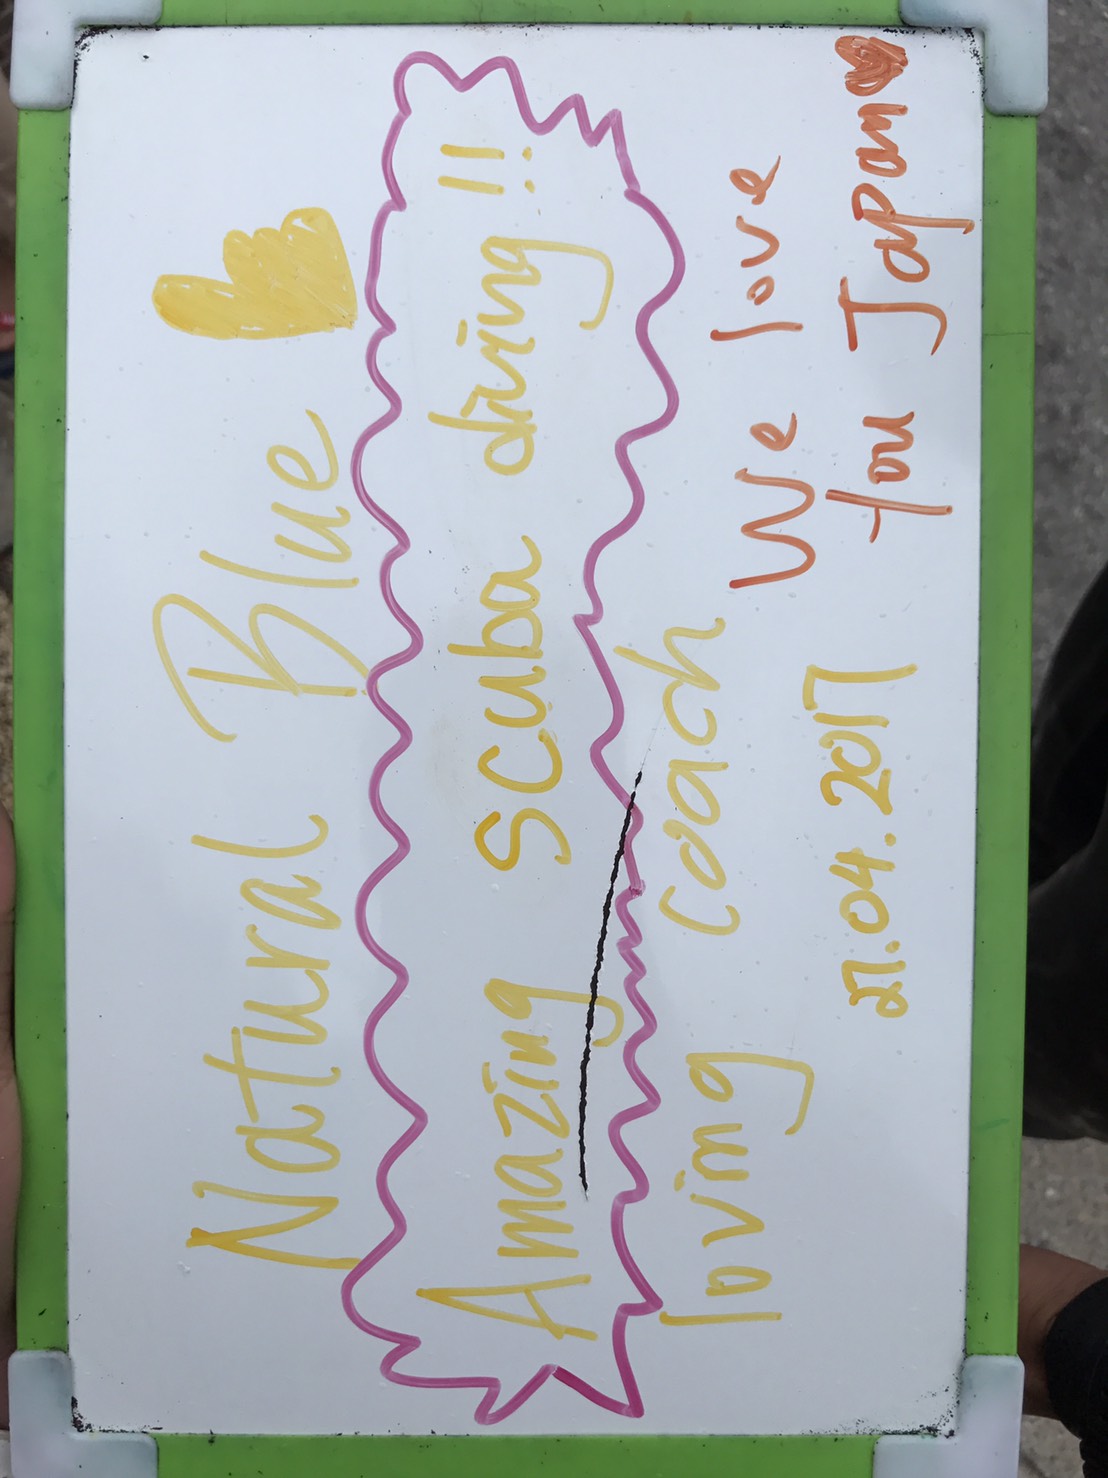 Natural Blue
Amazing scuba driving !!
loving coach
We love
You Japan
27.04.2017